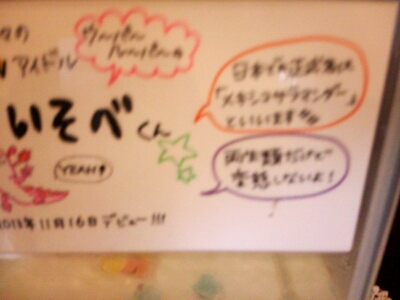 ウーパー
ルーパーの
アイドル
いそべくん
YEAH!
日本での正式名は
「メキシコサラマンダー」
といいます
両生類だけど
変態しないよ!
2013年11月16日デビュー!!!